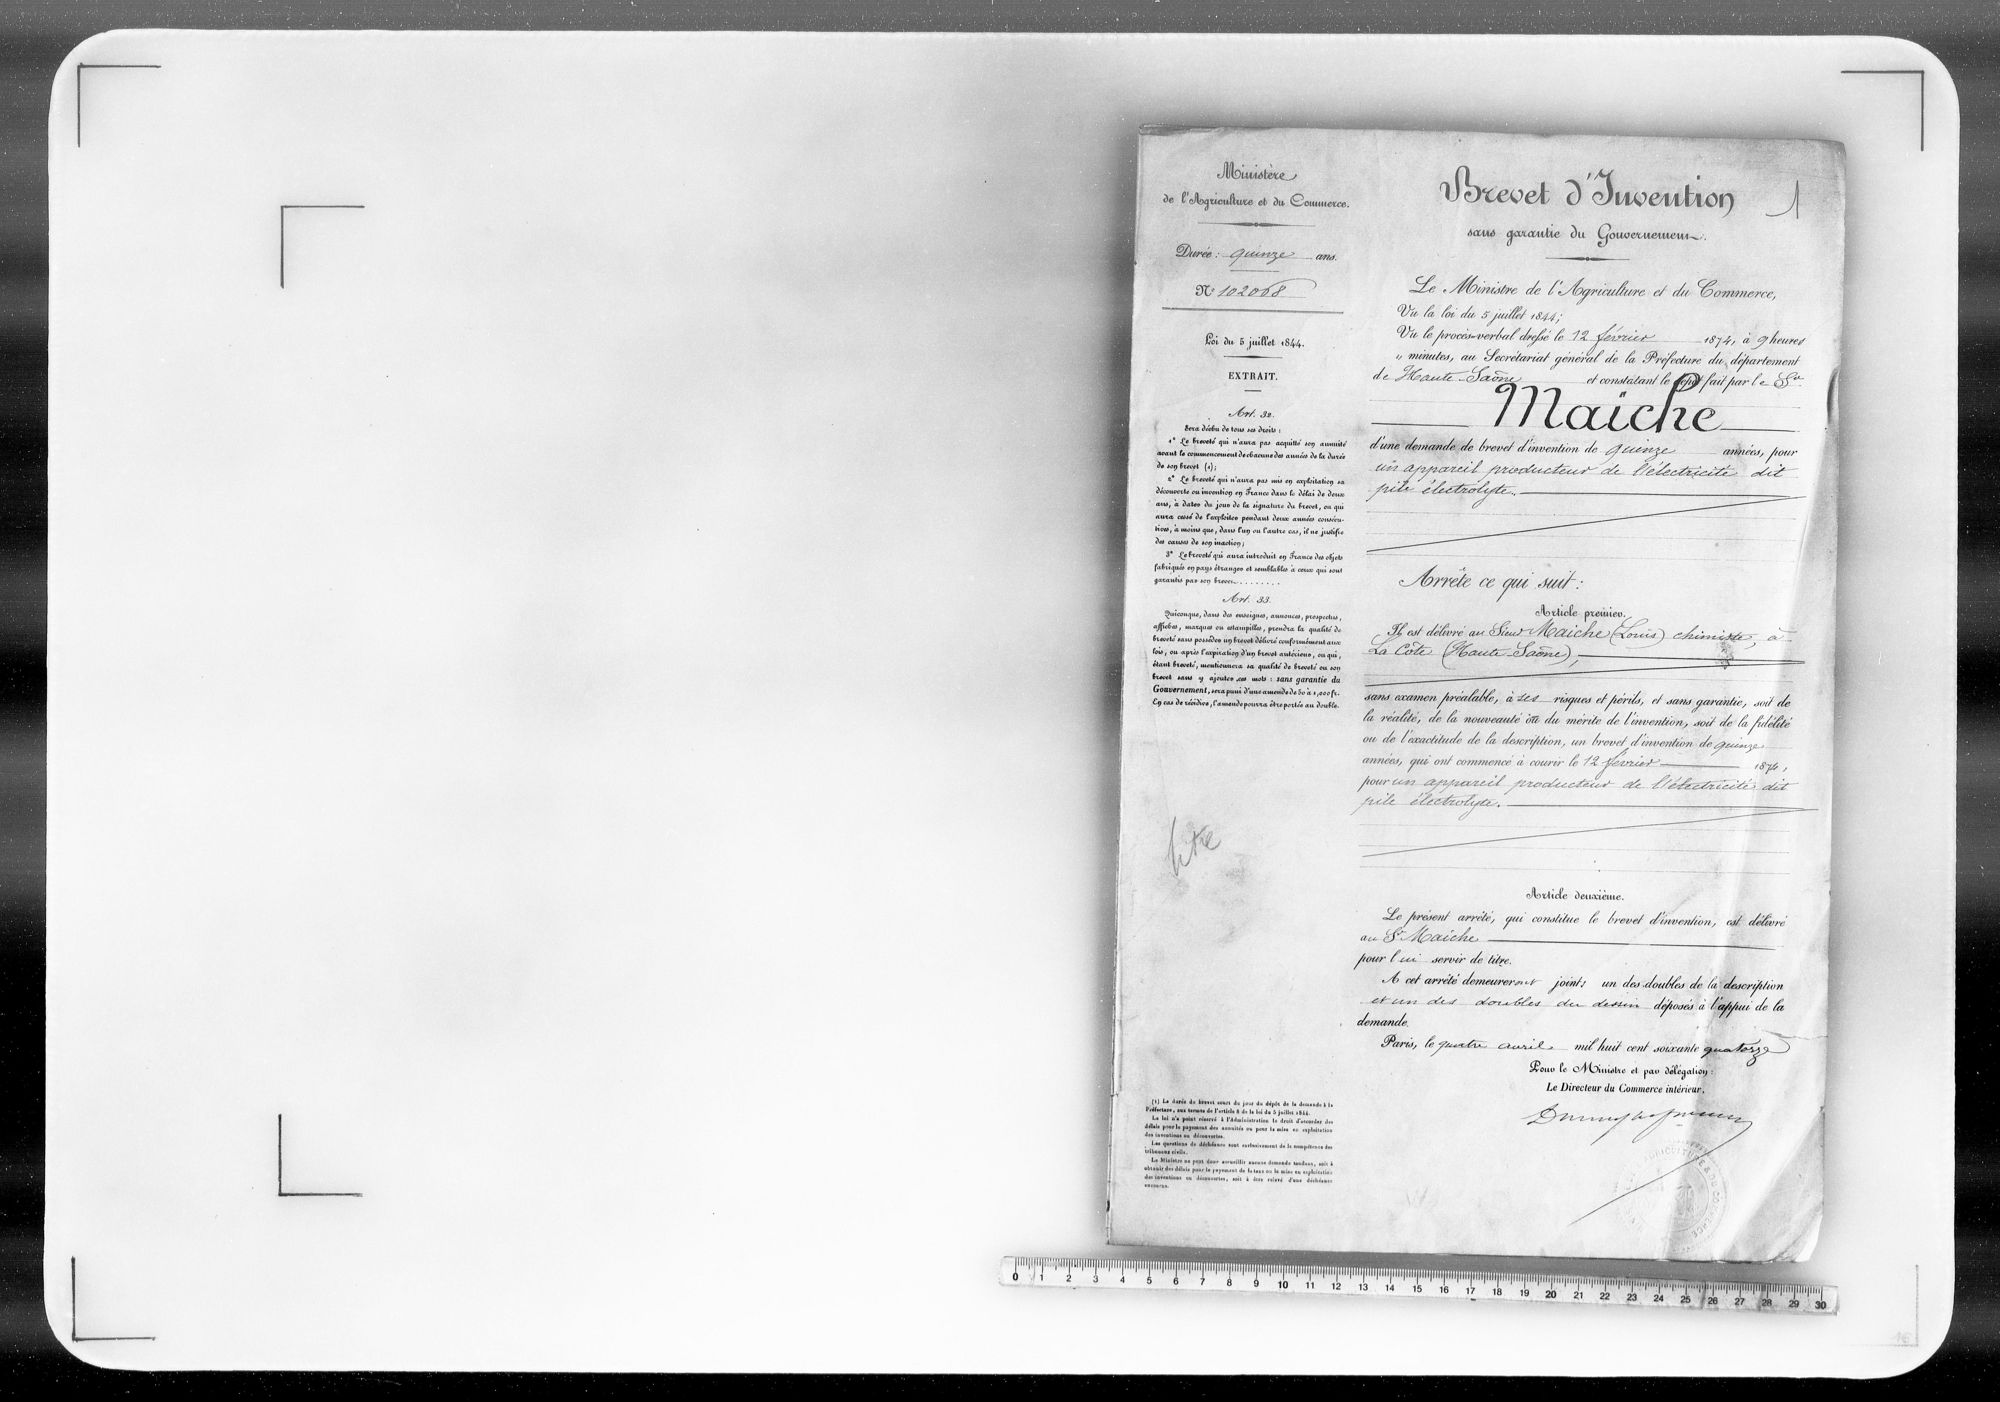 Ministère
de l'Agriculture et du Commerce.
Durée : quinze ans.
N° 102068
Loi du 5 juillet 1844.
EXTRAIT.
Art. 32.
Sera déchu de tous ses droits :
1° Le breveté qui n'aura pas acquitté son annuité
avant le commencement de chacune des années de la durée
de son brevet (1);
2° Le breveté qui n'aura pas mis en exploitation sa
découverte ou invention en France dans le délai de deux
ans, à dater du jour de la signature du brevet, ou qui
aura cessé de l'exploiter pendant deux années consécu-
tives, à moins que, dans l'un ou l'autre cas, il ne justifie
des causes de son inaction;
3° Le breveté qui aura introduit en France des objets
fabriqués en pays étranger et semblables à ceux qui sont
garantis par son brevet.........
Art. 33.
Quiconque, dans des enseignes, annonces, prospectus,
affiches, marques ou estampilles, prendra la qualité de
breveté sans posséder un brevet délivré conformément aux
lois, ou après l'expiration d'un brevet antérieur, ou qui,
étant breveté, mentionnera sa qualité de breveté ou son
brevet sans y ajouter ces mots : sans garantie du
Gouvernement, sera puni d'une amende de 50 à 1,000 fr.
En cas de récidive, l'amende pourra être portée au double.
titre
(1) La durée du brevet court du jour du dépôt de la demande à la
Préfecture, aux termes de l'article 8 de la loi du 5 juillet 1844.
La loi n'a point réservé à l'Administration le droit d'accorder des
délais pour le payement des annuités ou pour la mise en exploitation
des inventions ou découvertes.
Les questions de déchéance sont exclusivement de la compétence des
tribunaux civils.
Le Ministre ne peut donc accueillir aucune demande tendant, soit à
obtenir des délais pour le payement de la taxe ou la mise en exploitation
des inventions ou découvertes, soit à être relevé d'une déchéance
encourue.
Brevet d'Invention
1
sans garantie du Gouvernement.
Le Ministre de l'Agriculture et du Commerce,
Vu la loi du 5 juillet 1844;
Vu le procès-verbal dressé le 12 février 1874, à 9 heures
" minutes, au Secrétariat général de la Préfecture du département
de Haute-Saône et constatant le dépôt fait par le Sr
Maiche
d'une demande de brevet d'invention de quinze années, pour
un appareil producteur de l'électricité dit
pile électrolyte.
Arrête ce qui suit :
Article premier.
Il est délivré au Sieur Maiche (Louis) chimiste, à
La Côte (Haute-Saône),
sans examen préalable, à ses risques et périls, et sans garantie, soit de
la réalité, de la nouveauté ou du mérite de l'invention, soit de la fidélité
ou de l'exactitude de la description, un brevet d'invention de quinze
années, qui ont commencé à courir le 12 février 1874,
pour un appareil producteur de l'électricité dit
pile électrolyte.
Article deuxième.
Le présent arrêté, qui constitue le brevet d'invention, est délivré
au Sr Maiche
pour lui servir de titre.
A cet arrêté demeureront joints un des doubles de la description
et un des doubles du dessin déposés à l'appui de la
demande.
Paris, le quatre avril mil huit cent soixante quatorze
Pour le Ministre et par délégation :
Le Directeur du Commerce intérieur.
AGRICULTURE & DU COMMERCE
0 1 2 3 4 5 6 7 8 9 10 11 12 13 14 15 16 17 18 19 20 21 22 23 24 25 26 27 28 29 30
16